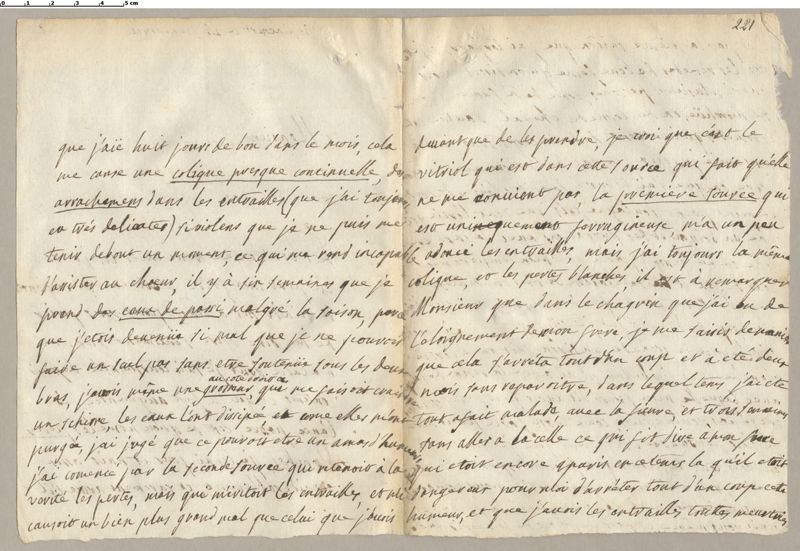 0 1 2 3 4 5 cm
221
que j'aie huit jours de bon dans le mois, cela
me cause une colique presque continuelle, des
arrachemens dans les entrailles (que j'ai toujours
eu très delicates) si violens que je ne puis me
tenir debout un moment, ce qui me rend incapable
d'assister au chœur, il y à six semaines que je
prend des eaux de passi malgré la saison, parce
que j'etois devenüe si mal que je ne pouvois
faire un seul pas sans etre soutenüe sous les deux
bras, j'avois même une grosseur au coté droit qui me faisoit craindre
un schirre, les eaux l'ont dissipée et come elles m'ont
purgée, j'ai jugé que ce pouvoit etre un amas d'humeurs
j'ai comencé par la seconde source qui retenoit à la
verité les pertes, mais qui m'irritoit les entrailles, et me
causoit un bien plus grand mal que celui que j'avois
devant que de les prendre, je croi que c'est le
vitriol qui est dans cette source qui fait qu'elle
ne me convient pas, la premiere source qui
est uniquement ferrugineuse, m'a un peu
adouci les entrailles, mais j'ai toujours la même
colique, et les pertes blanches, il est a remarquer
Monsieur que dans le chagrin que j'ai eu de
l'eloignement de mon frere, je me saisis de maniere
que cela s'arreta tout d'un coup et a eté deux
mois sans reparoitre, dans lequel tems j'ai eté
tout afait malade, avec la fievre et trois semaines
sans aller a la selle ce qui fit dire à mon frere
qui etoit encore a paris en ce tems la qu'il etoit
dangereux pour moi d'arrêter tout d'un coup cette
humeur, et que j'avois les entrailles toutes meurtries